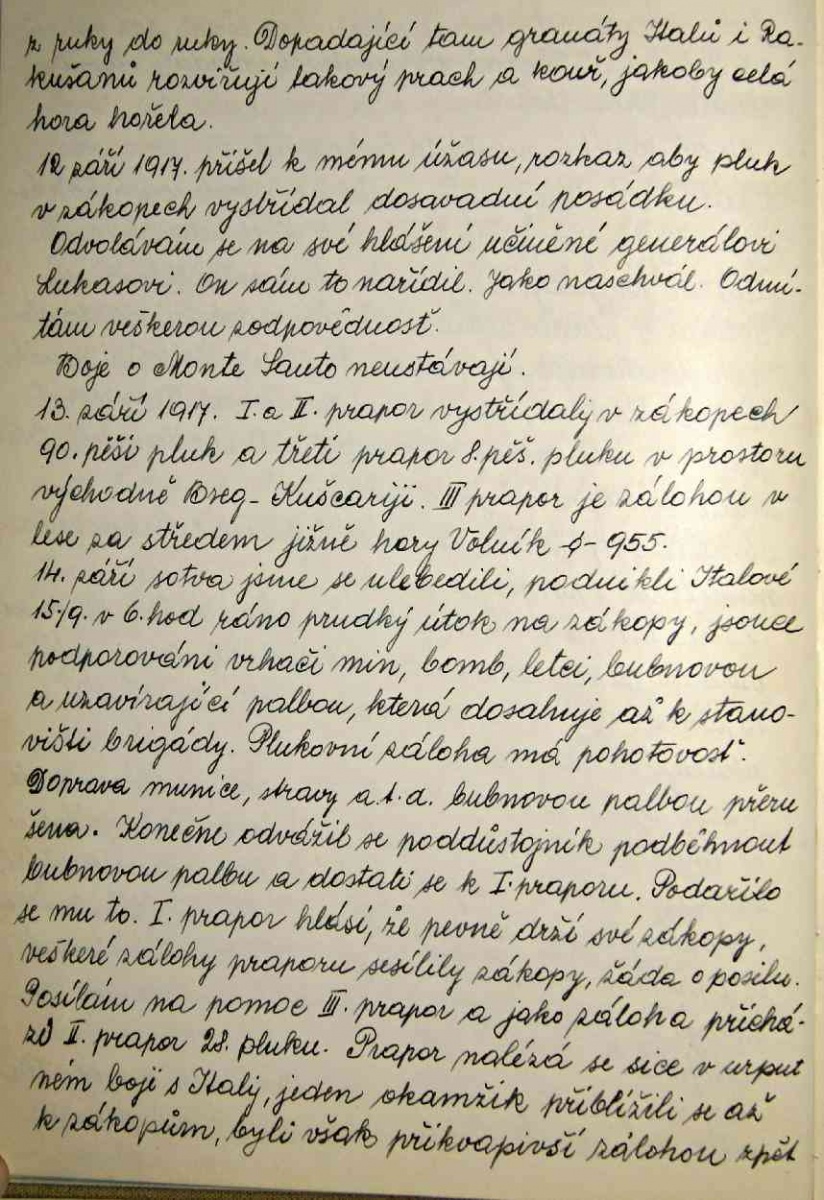 z ruky do ruky. Dopadající tam granáty Italů i Ra-
kušanů rozviřují takový prach a kouř, jakoby celá
hora hořela.
12 září 1917. přišel k mému úžasu, rozkaz aby pluk
v zákopech vystřídal dosavadní posádku.
Odvolávám se na své hlášení učiněné generálovi
Lukasovi. On sám to nařídil. Jako naschvál. Odmí-
tám veškerou zodpovědnosť.
Boje o Monte Santo neustávají.
13. září 1917. I. a II. prapor vystřídaly v zákopech
90. pěší pluk a třetí prapor 8. pěš. pluku v prostoru
východně Breg-Kuščariji. III prapor je zálohou v
lese za středem jižně hory Volník -¢- 955.
14. září sotva jsme se ulebedili, podnikli Italové
15./9. v 6. hod ráno prudký útok na zákopy, jsouce
podporováni vrhači min, bomb, letci, bubnovou
a uzavírající palbou, která dosahuje až k stano-
višti brigády. Plukovní záloha má pohotovosť.
Doprava munice, stravy a.t.d. bubnovou palbou přeru
šena. Konečne odvážil se poddůstojník podběhnout
bubnovou palbu a dostati se k I. praporu. Podařilo
se mu to. I. prapor hlásí, že pevně drží své zákopy,
veškeré zálohy praporu sesílily zákopy, žáda o posilu.
Posílám na pomoc III. prapor a jako záloha přichá-
zí II. prapor 28. pluku. Prapor nalézá se sice v urput
ném boji s Italy, jeden okamžik přiblížili se až
k zákopům, byli však přikvapivší zálohou zpět